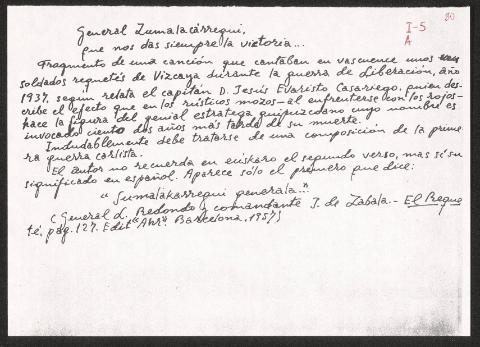 General Zumalacárregui,
que nos das siempre la victoria...
I-5
A
80
Fragmento de una canción que cantaban en vascuence unos
soldados requetés de Vizcaya durante la guerra de Liberación, año
1937, segun relata el capitán D. Jesús Evaristo Casariego, quien des-
cribe el efecto que en los rústicos mozos -al enfrentarse con los rojos-
hace la figura del genial estratega guipuzcoano cuyo nombre es
invocado ciento dos años más tarde de su muerte.
Indudablemente debe tratarse de una composición de la prime-
ra guerra carlista.
El autor no recuerda en euskaro el segundo verso, mas sí su
significado en español. Aparece sólo el primero que dice:
"Sumalakarregui generala..."
(General L. Redondo y comandante J. de Zabala.- El Reque
té, pág. 127. Edit "Ahr". Barcelona, 1957)